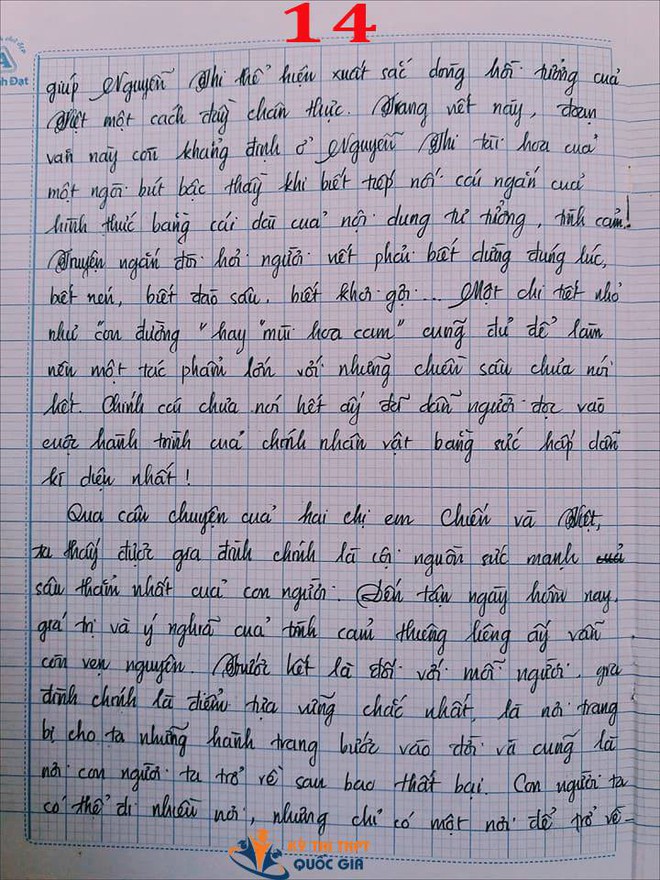 14
nh Đạt
giúp Nguyễn Thi thể hiện xuất sắc dòng hồi tưởng của
Việt một cách đầy chân thực. Trang viết này, đoạn
văn này còn khẳng định ở Nguyễn Thi tài hoa của
một ngòi bút bậc thầy khi biết tiếp nối cái ngắn của
hình thức bằng cái dài của nội dung tư tưởng, tình cảm!
Truyện ngắn đòi hỏi người viết phải biết dừng đúng lúc,
biết nén, biết đào sâu, biết khơi gợi... Một chi tiết nhỏ
như "con đường" hay "mùi hoa cam" cũng đủ để làm
nên một tác phẩm lớn với những chiều sâu chưa nói
hết. Chính cái chưa nói hết ấy đã dẫn người đọc vào
cuộc hành trình của chính nhân vật bằng sức hấp dẫn
kì diệu nhất!
Qua câu chuyện của hai chị em Chiến và Việt,
ta thấy được gia đình chính là cội nguồn sức mạnh của
sâu thẳm nhất của con người. Đến tận ngày hôm nay,
giá trị và ý nghĩa của tình cảm thiêng liêng ấy vẫn
còn vẹn nguyên. Trước hết là đối với mỗi người, gia
đình chính là điểm tựa vững chắc nhất, là nơi trang
bị cho ta những hành trang bước vào đời và cũng là
nơi con người ta trở về sau bao thất bại. Con người ta
có thể đi nhiều nơi, nhưng chỉ có một nơi để trở về-
KỲ THI THPT
QUỐC GIA